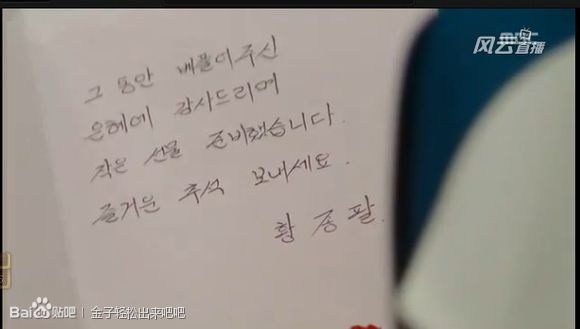 mbc
风云直播
그 동안 베풀어주신
은혜에 감사드리며
작은 선물 준비했습니다.
즐거운 추석 보내세요.
황 종 팔.
Bai贴吧 | 金子轻松出来吧吧